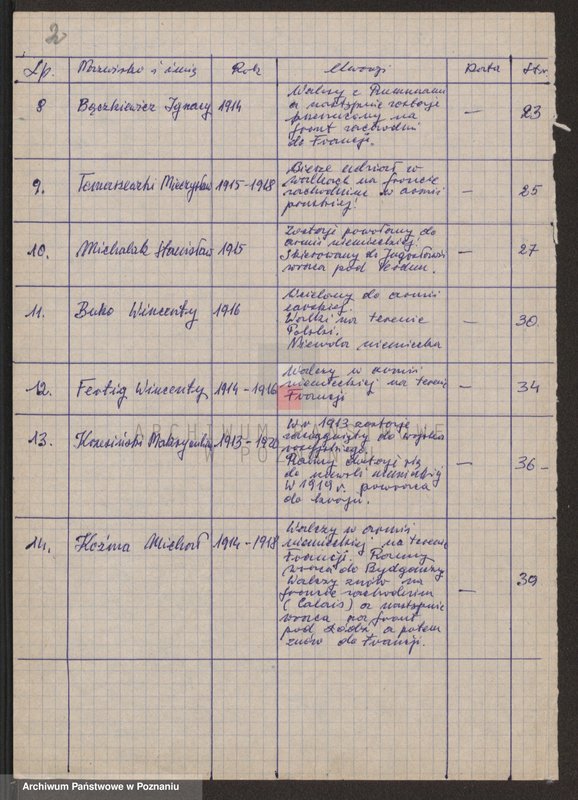 2
Lp. Nazwisko i imię Rok Uwagi Data Str.
8 Bączkiewicz Ignacy 1914 Walczy z Rumunami — 23
a następnie zostaje
przerzucony na
front zachodni
do Francji.
9. Tomaszewski Mieczysław 1915-1918 Bierze udział w — 25
walkach na froncie
zachodnim w armii
pruskiej!
10. Michalak Stanisław 1915 Zostaje powołany do — 27
armii niemieckiej!
Skierowany do Jugosławii
wraca pod Verdun.
11. Buko Wincenty 1916 Wcielony do armii — 30
carskiej.
Walki na terenie
Polski.
Niewola niemiecka
12. Fertig Wincenty 1914-1916 Walczy w armii — 34
niemieckiej na terenie
Francji
13. Maksymilian 1913-1920 W r. 1913 zostaje — 36
zaciągnięty do wojska
rosyjskiego.
Ranny dostaje się
do niewoli niemieckiej
W 1919 r. powraca
do kraju.
14. Koźma Michał 1914-1918 Walczy w armii — 39
niemieckiej na terenie
Francji. Ranny
wraca do Bydgoszczy
Walczy znów na
froncie zachodnim
(Calais) a następnie
wraca na front
pod Łódź a potem
znów do Francji.
ARCHIWUM PAŃSTWOWE
W POZNANIU
Archiwum Państwowe w Poznaniu